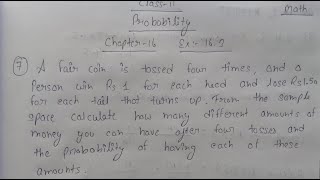 Class-11
Maths
Probability
Chapter-16 Ex-16.3
⑦ A fair coin is tossed four times, and a
Person win Rs 1 for each head and lose Rs 1.50
for each tail that turns up. From the sample
space calculate how many different amounts of
money you can have after four tosses and
the probability of having each of these
amounts.